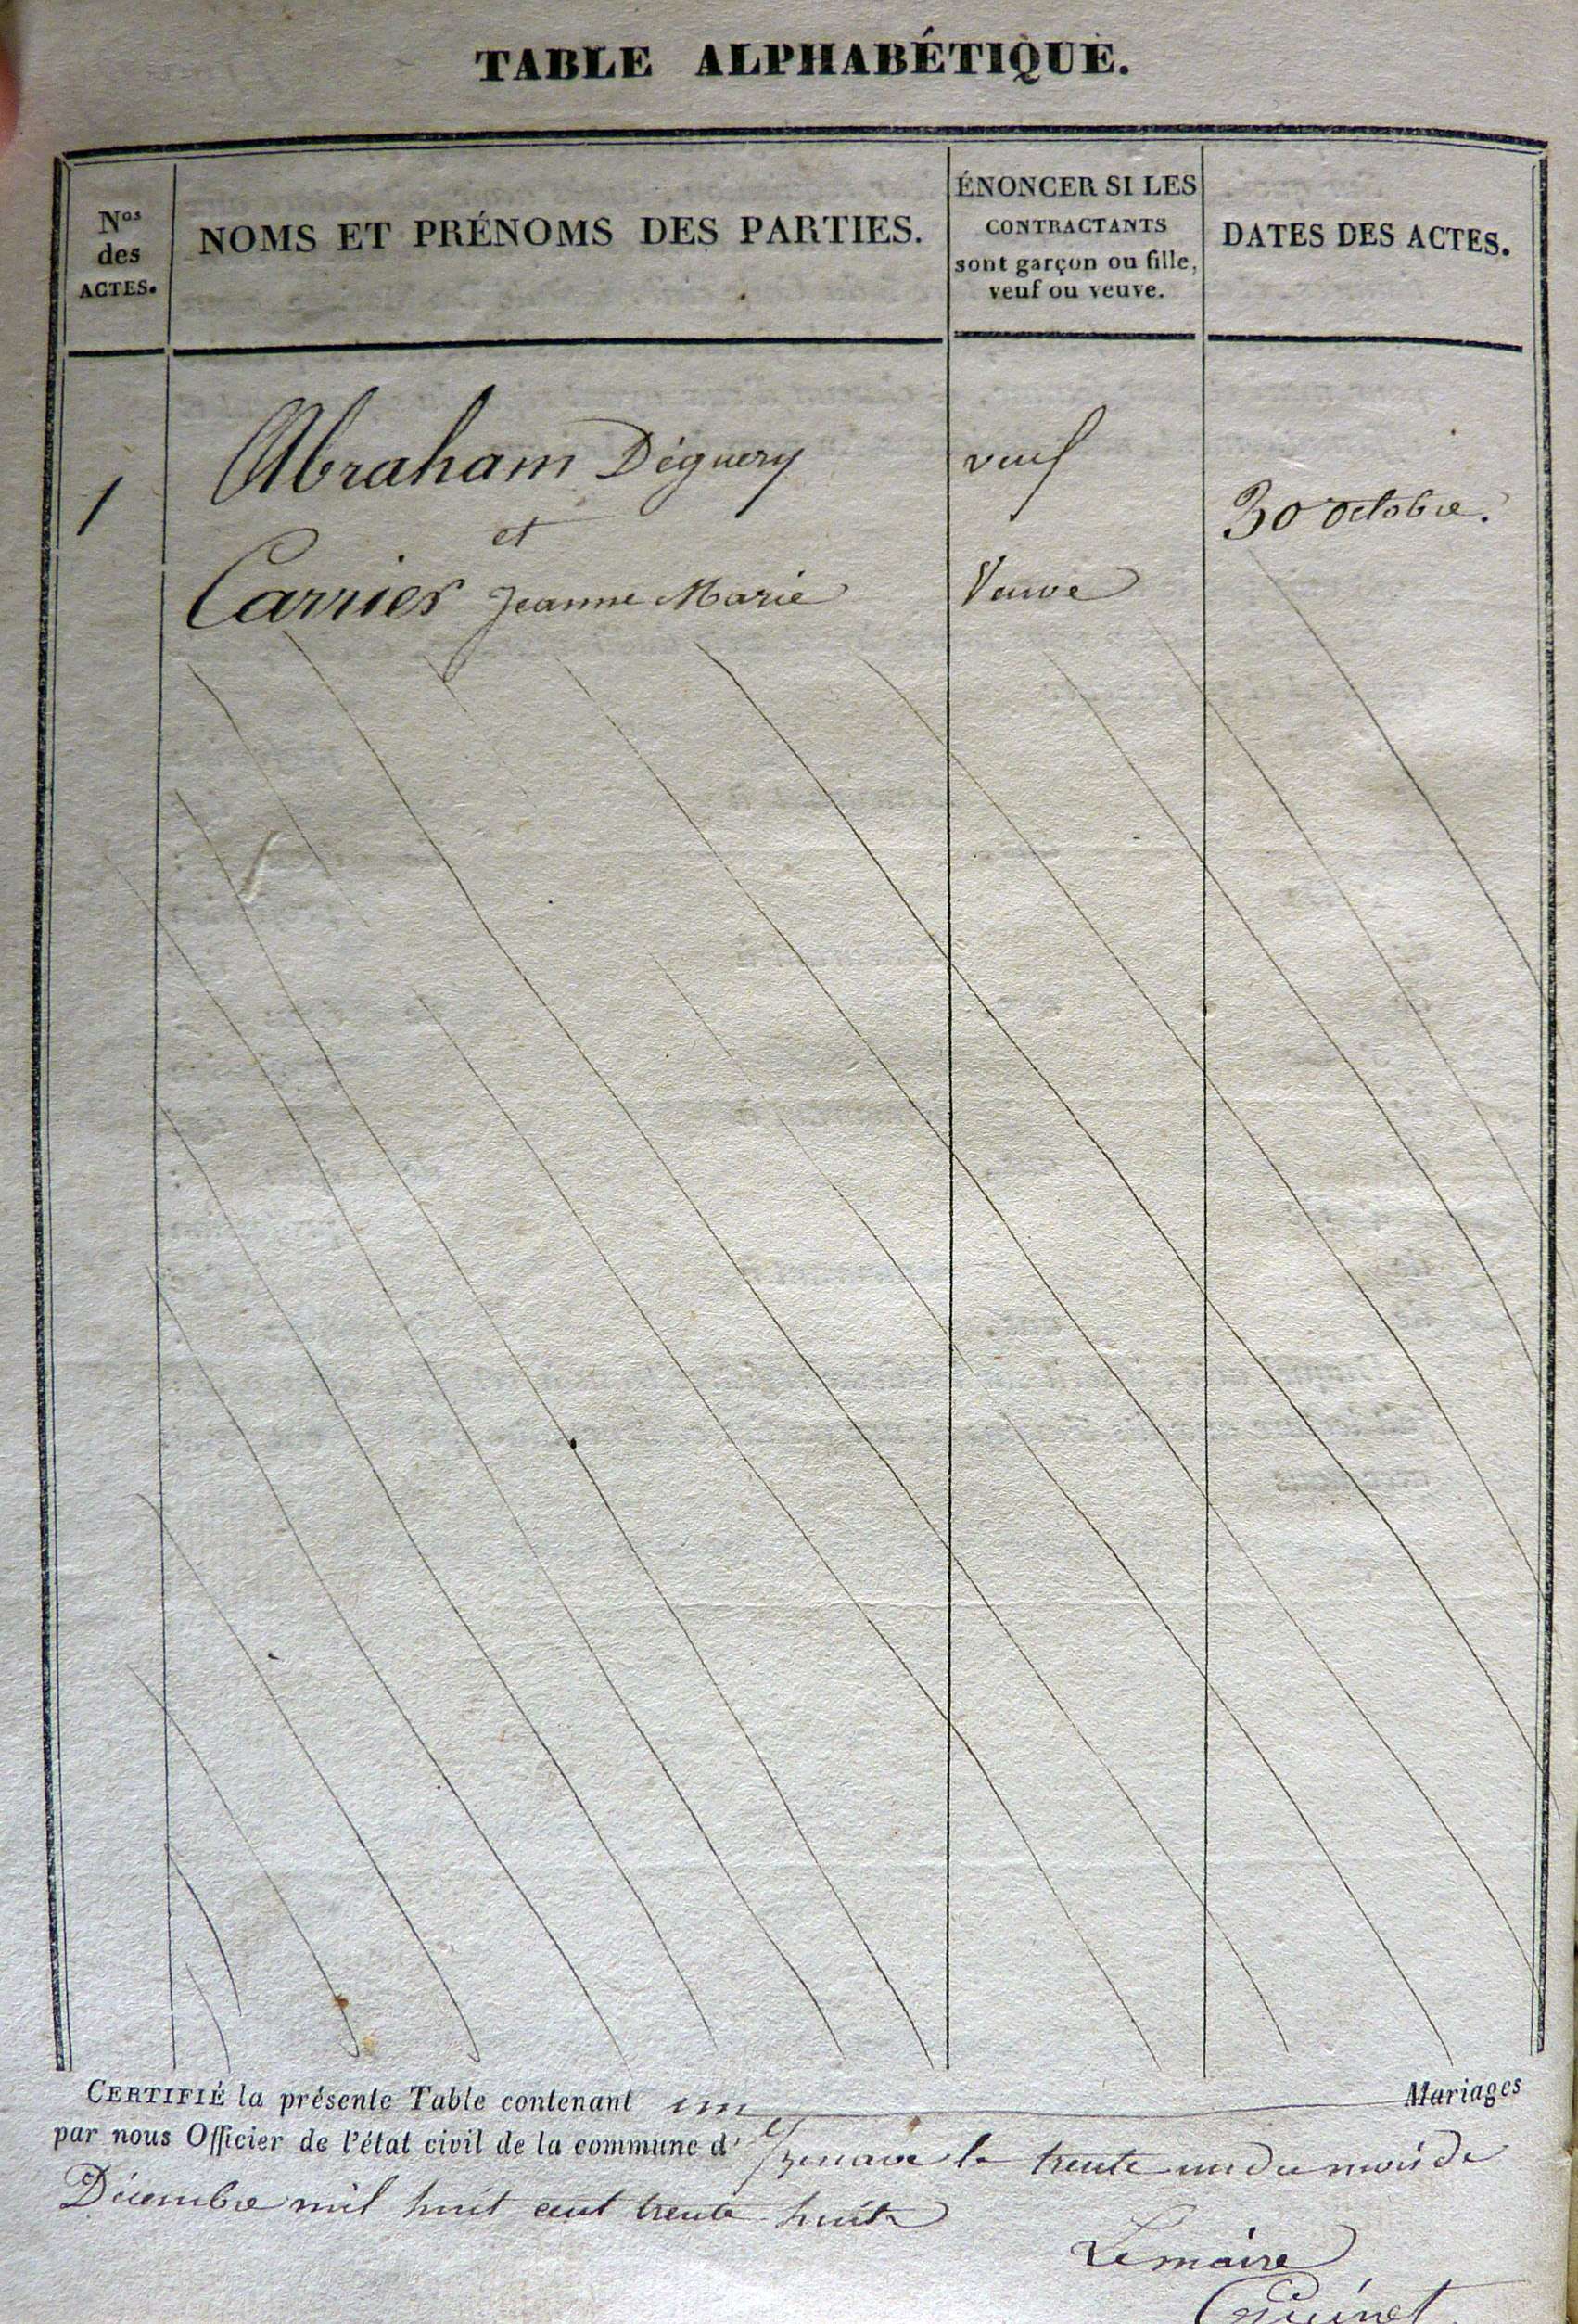 TABLE ALPHABÉTIQUE.
Nos
des
ACTES.
NOMS ET PRÉNOMS DES PARTIES.
ÉNONCER SI LES
CONTRACTANTS
sont garçon ou fille,
veuf ou veuve.
DATES DES ACTES.
1
Abraham Déguery
veuf
et
30 octobre.
Carrier Jeanne Marie
Veuve
CERTIFIÉ la présente Table contenant un Mariages
par nous Officier de l'état civil de la commune d' le trente un du mois de
Décembre mil huit cent trente huit
Lemaire
Guinet